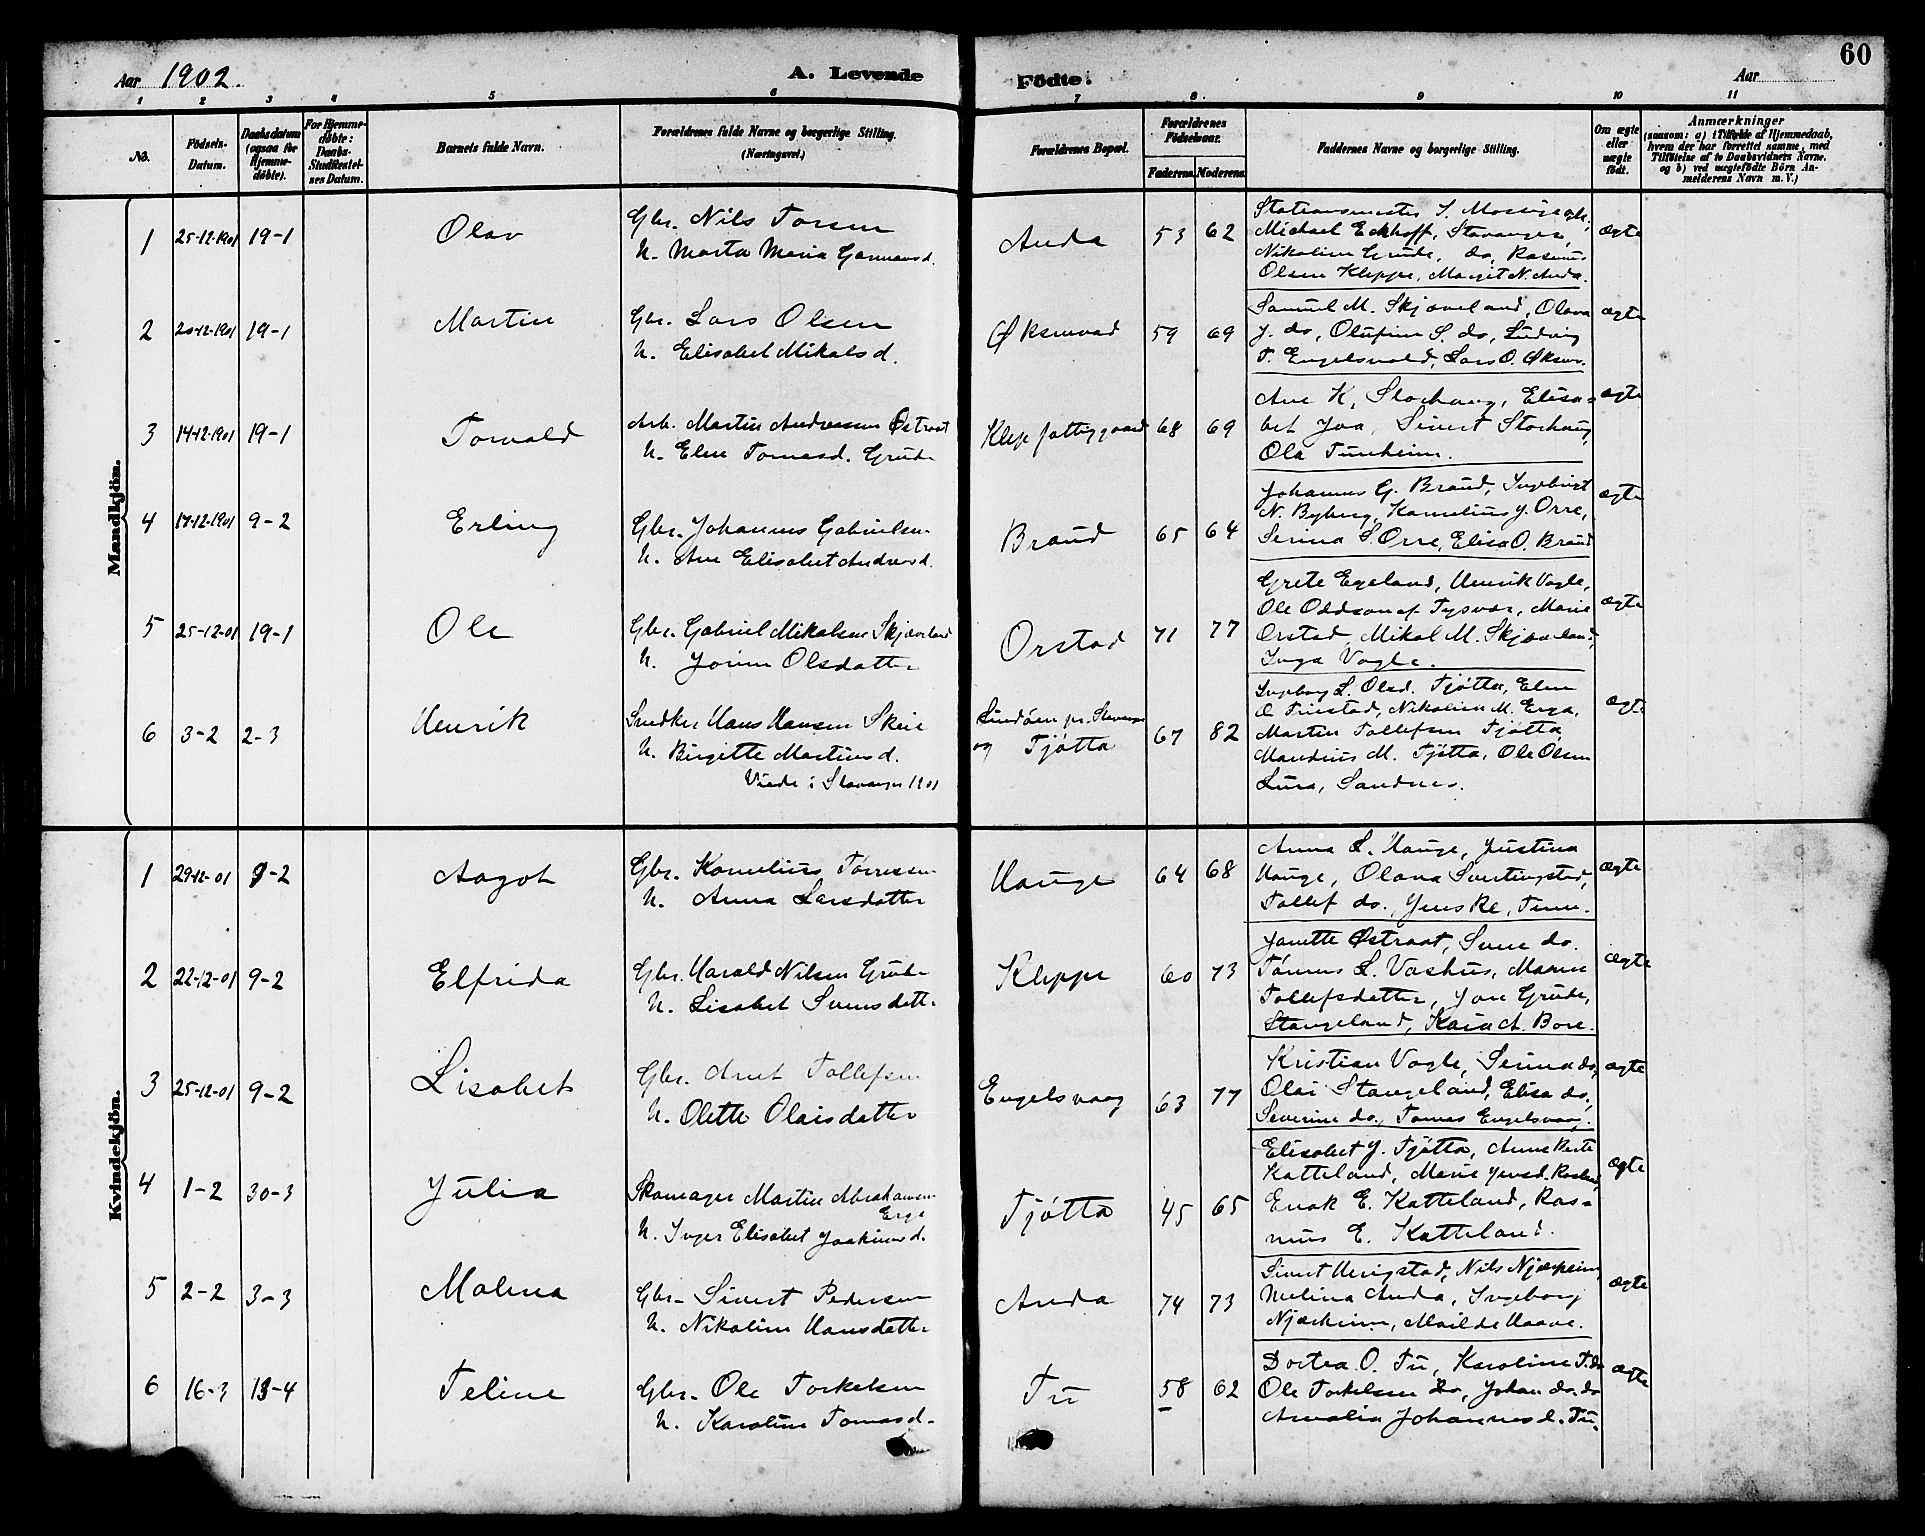 60
Aar 1902.
A. Levende
Födte.
Aar
1 2 3 4 5 6 7 8 9 10 11
No.
Födsels-Datum.
Daabsdatum (ogsaa for Hjemme-döbte).
For Hjemme-döbte: Daabs-Stadfæstel-ses Datum.
Barnets fulde Navn.
Forældrenes fulde Navne og borgerlige Stilling. (Næringsvei.)
Forældrenes Bopæl.
Forældrenes Födselsaar.
Faderens. Moderens.
Faddernes Navne og borgerlige Stilling.
Om ægte eller uægte födt.
Anmærkninger
(saasom: a) i Tilfælde af Hjemmedaab,
hvem der har forrettet samme, med
Tilföielse af to Daabsvidners Navne.
og b) ved uægtefödte Börn An-
melderens Navn m. V.)
Mandkjön.
1 25-12-1901 19-1 Olav
Gbr. Nils Torsen
H. Marta Maria Gunnarsd.
Anda 53 62
Stationsmester S. Mossige
Michael Eckhoff, Stavanger,
Nikoline Grude, do, Rasmus
Olsen Kleppe, Margit N. Anda.
ægte
2 20-12-1901 19-1 Martin
Gbr. Lars Olsen
H. Elisabet Mikalsd.
Øksnevad 59 69
Samuel M. Skjæveland, Olava
J. do, Olufine S. do, Ludvig
T. Engelsvold, Lars O. Øksnev.
ægte
3 14-12-1901 19-1 Torvald
Arb. Martin Andreassen Østraat
H. Elen Tomasd. Grude
Klep fattiggaard 68 69
Ane K. Storhaug, Elisa-
bet Joa, Sivert Storhaug
Ola Tunheim.
ægte
4 17-12-1901 9-2 Erling
Gbr. Johannes Gabrielsen
H. Ane Elisabet Andreasd.
Braud 65 64
Johannes G. Braud, Ingebrigt
N. Byberg, Kornelius J. Orre,
Serina S. Orre, Elisa O. Braud
ægte
5 25-12-01 19-1 Ole
Gbr. Gabriel Mikalsen Skjæveland
H. Jorine Olsdatter
Orstad 71 77
Grete Egeland, Henrik Vagle,
Ole Oddson af Tysvær, Marie
Orstad, Mikal M. Skjæveland,
Inga Vagle.
ægte
6 3-2 2-3 Henrik
Snedker Hans Hansen Skeie
H. Birgitte Martinsd.
Viede i Stavanger 1901
Lindøen pr. Stavanger
og Tjøtta 67 82
Ingeborg L. Olsd. Tjøtta, Elen
O Friestad, Nikoline M. Erga,
Martin Tollefsen Tjøtta,
Maudius M. Tjøtta, Ole Olsen
Lura, Sandnes.
ægte
Kvindekjön.
1 29-12-01 9-2 Aagot
Gbr. Kornelius Tørresen
H. Anna Larsdatter
Hauge 64 68
Anna L. Hauge, Justina
Hauge, Olana Svertingstad,
Tollef do., Jens Re, Time.
ægte
2 22-12-01 9-2 Elfrida
Gbr. Harald Nilsen Grude
H. Lisabet Svensdatt.
Kleppe 60 73
Janette Østraat, Sven do.
Tønnes L. Vashus, Maren
Tollefsdatter, Jon Grude,
Stangeland, Kaia A. Bore.
ægte
3 25-12-01 9-2 Lisabet
Gbr. Arnt Tollefsen
H. Olette Olaisdatter
Engelsvaag 63 77
Kristian Vagle, Serina do,
Olai Stangeland, Elisa do,
Severine do, Tomas Engelsvaag.
ægte
4 1-2 30-3 Julia
Skomager Martin Abrahamsen
Erga
H. Inger Elisabet Joakimsd.
Tjøtta 45 65
Elisabet J. Tjøtta, Anne Kirste
Katteland, Marie Jensd.
Enok E. Katteland, Ras-
mus E. Katteland.
ægte
5 2-2 3-3 Malena
Gbr. Sivert Pedersen
H. Nikoline Hansdatter
Anda 74 73
Sivert Herigstad, Nils Njærheim,
Melina Anda, Ingeborg
Njærheim, Marilde Haave.
ægte
6 16-3 13-4 Teline
Gbr. Ole Torkelsen
H. Karoline Tomasd.
Tu 58 62
Dortea O. Tu, Karoline T. do
Ole Torkelsen do, Johan do. do
Amalia Johannesd. Tu.
ægte